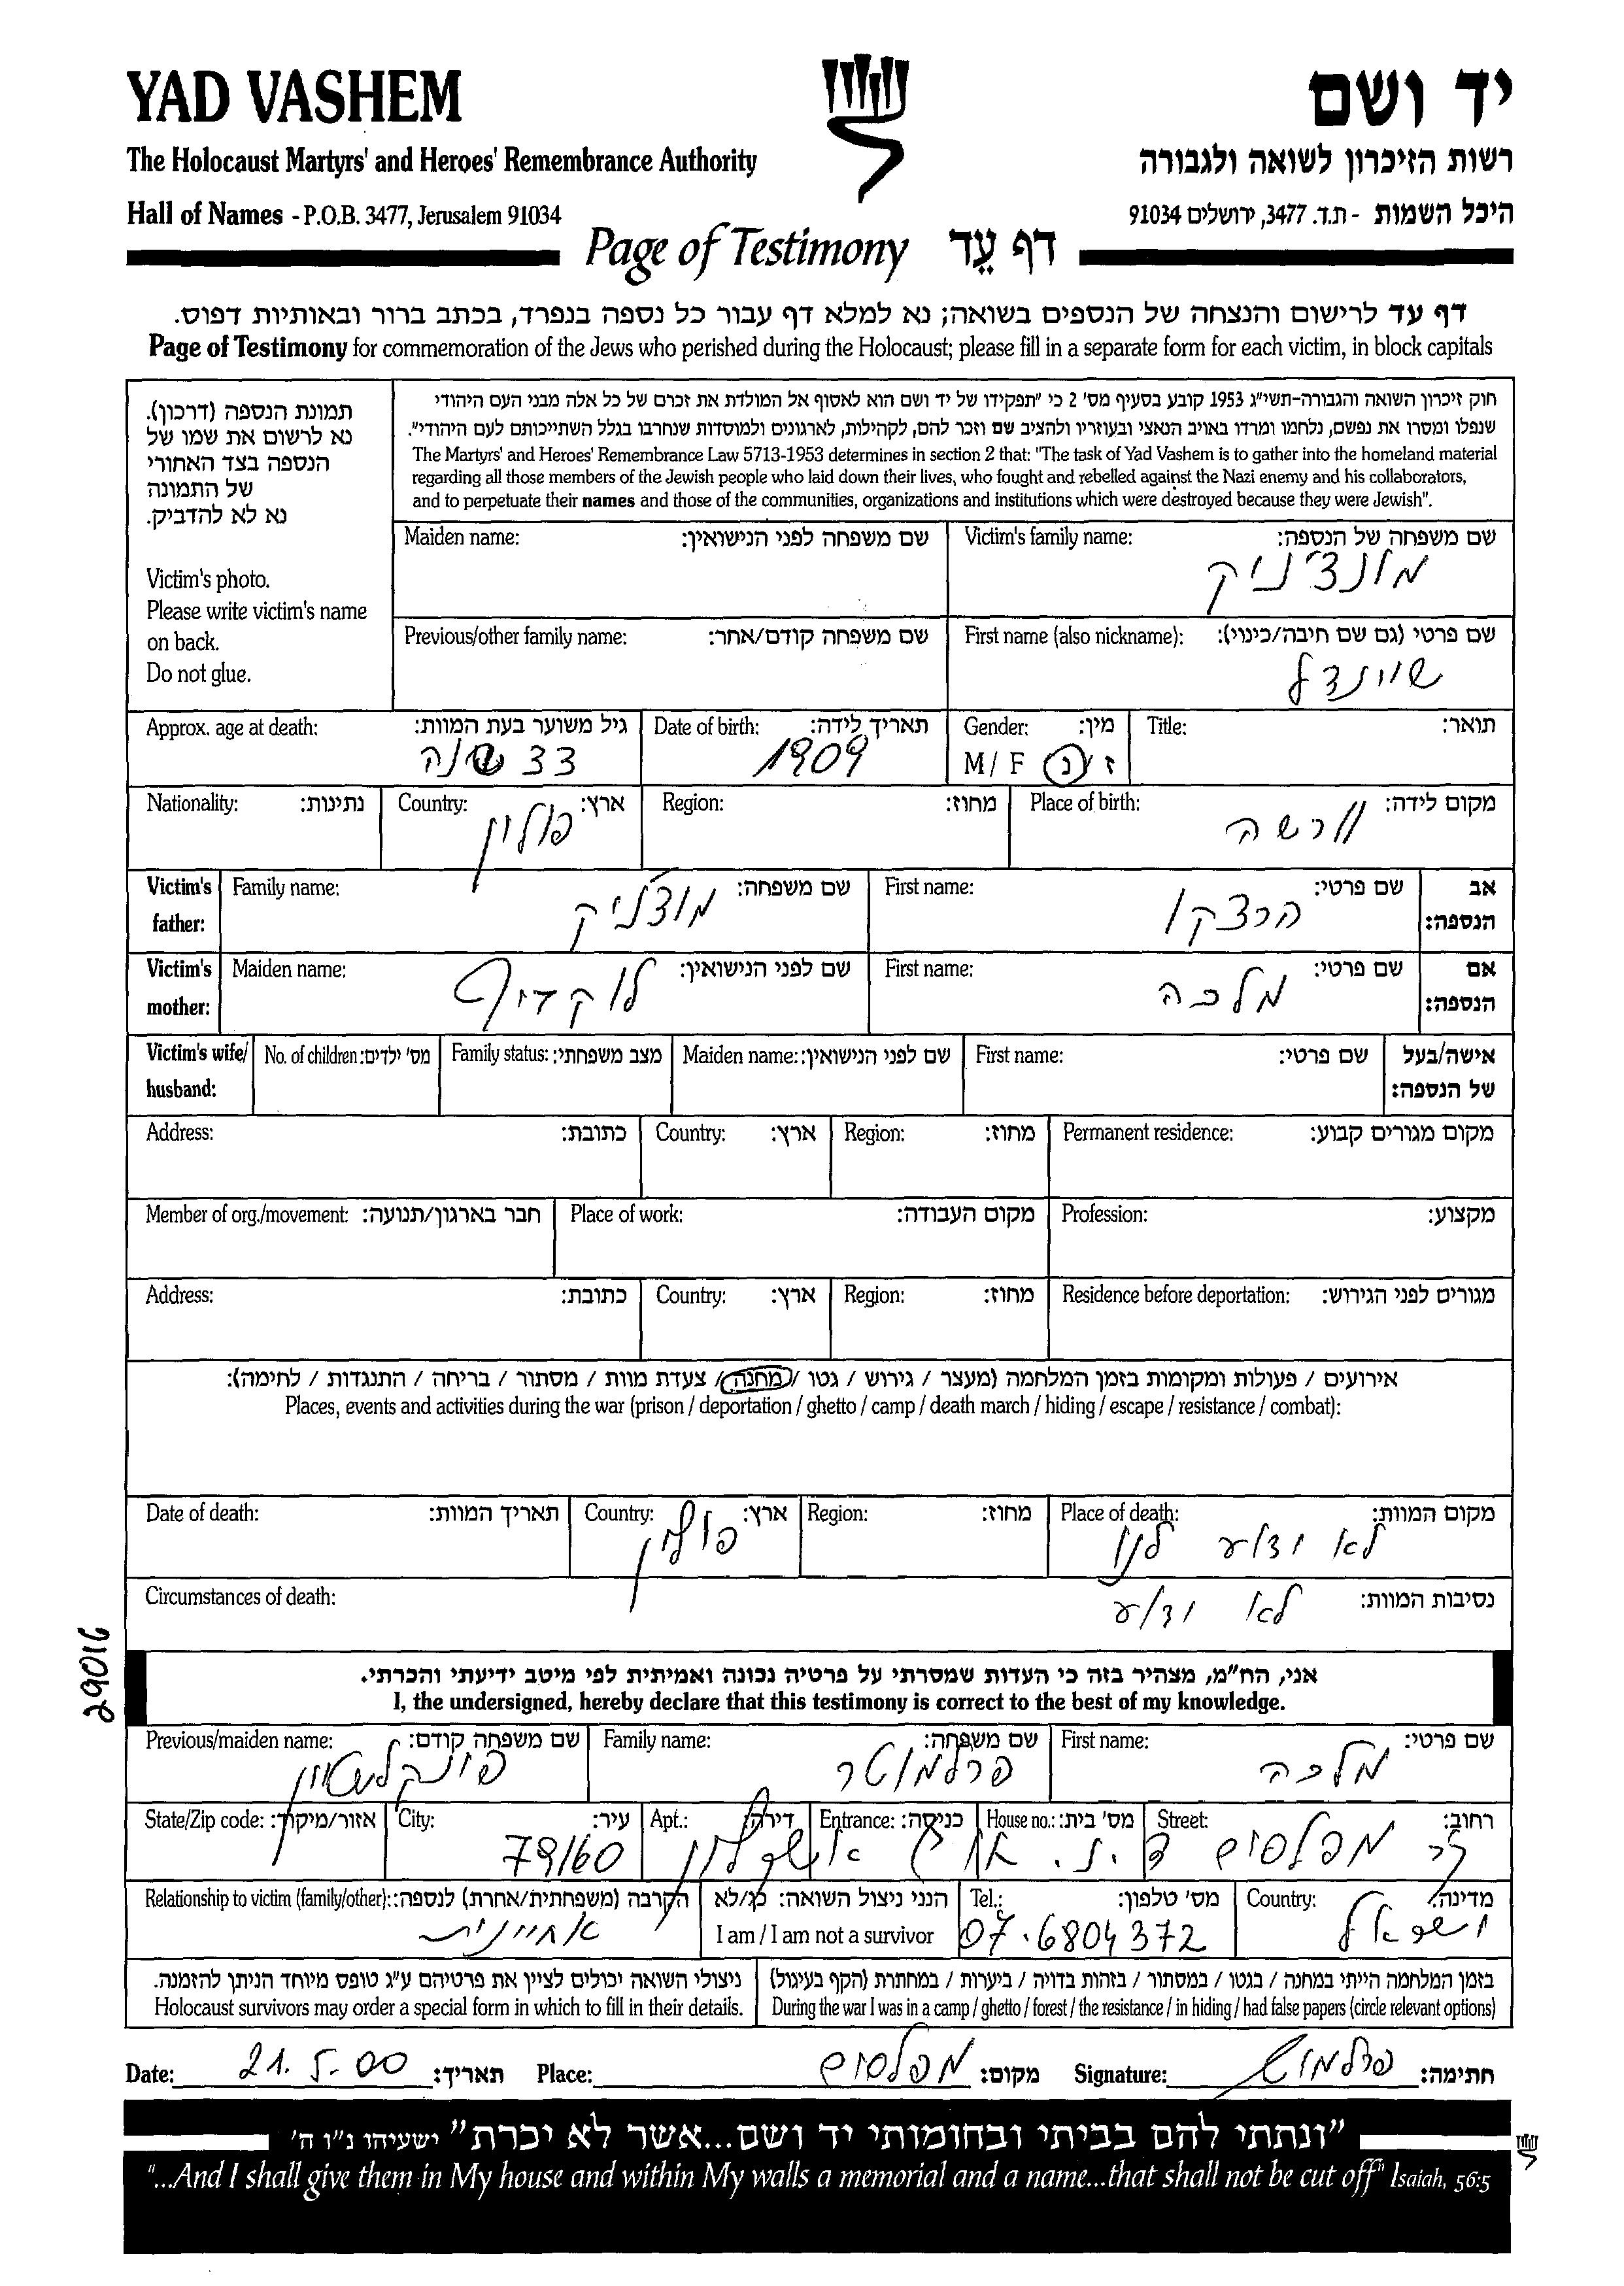 YAD VASHEM
יד ושם
The Holocaust Martyrs' and Heroes' Remembrance Authority
רשות הזיכרון לשואה ולגבורה
Hall of Names - P.O.B. 3477, Jerusalem 91034
היכל השמות - ת.ד. 3477, ירושלים 91034
Page of Testimony דף עֵד
דף עד לרישום והנצחה של הנספים בשואה; נא למלא דף עבור כל נספה בנפרד, בכתב ברור ובאותיות דפוס.
Page of Testimony for commemoration of the Jews who perished during the Holocaust; please fill in a separate form for each victim, in block capitals
תמונת הנספה (דרכון).
נא לרשום את שמו של
הנספה בצד האחורי
של התמונה
נא לא להדביק.
Victim's photo.
Please write victim's name
on back.
Do not glue.
חוק זיכרון השואה והגבורה-תשי"ג 1953 קובע בסעיף מס' 2 כי "תפקידו של יד ושם הוא לאסוף אל המולדת את זכרם של כל אלה מבני העם היהודי
שנפלו ומסרו את נפשם, נלחמו ומרדו באויב הנאצי ובעוזריו ולהציב שם וזכר להם, לקהילות, לארגונים ולמוסדות שנחרבו בגלל השתייכותם לעם היהודי".
The Martyrs' and Heroes' Remembrance Law 5713-1953 determines in section 2 that: "The task of Yad Vashem is to gather into the homeland material
regarding all those members of the Jewish people who laid down their lives, who fought and rebelled against the Nazi enemy and his collaborators,
and to perpetuate their names and those of the communities, organizations and institutions which were destroyed because they were Jewish".
Victim's family name: שם משפחה של הנספה:
מונצ'ניק
Maiden name: שם משפחה לפני הנישואין:
First name (also nickname): שם פרטי (גם שם חיבה/כינוי):
שיינדל
Previous/other family name: שם משפחה קודם/אחר:
Title: תואר:
Gender: מין:
M / F ז / נ
Date of birth: תאריך לידה:
1909
Approx. age at death: גיל משוער בעת המוות:
33 שנה
Place of birth: מקום לידה:
וורשה
Region: מחוז:
Country: ארץ:
פולין
Nationality: נתינות:
Victim's father: אב הנספה:
First name: שם פרטי:
הרצקו
Family name: שם משפחה:
Victim's mother: אם הנספה:
First name: שם פרטי:
מלכה
Maiden name: שם לפני הנישואין:
Victim's wife/ husband: אישה/בעל של הנספה:
First name: שם פרטי:
Maiden name: שם לפני הנישואין:
Family status: מצב משפחתי:
No. of children: מס' ילדים:
Permanent residence: מקום מגורים קבוע:
Region: מחוז:
Country: ארץ:
Address: כתובת:
Profession: מקצוע:
Place of work: מקום העבודה:
Member of org./movement: חבר בארגון/תנועה:
Residence before deportation: מגורים לפני הגירוש:
Region: מחוז:
Country: ארץ:
Address: כתובת:
אירועים / פעולות ומקומות בזמן המלחמה (מעצר / גירוש / גטו / מחנה / צעדת מוות / מסתור / בריחה / התנגדות / לחימה):
Places, events and activities during the war (prison / deportation / ghetto / camp / death march / hiding / escape / resistance / combat):
Place of death: מקום המוות:
לא ידוע לנו
Region: מחוז:
Country: ארץ:
פולין
Date of death: תאריך המוות:
Circumstances of death: נסיבות המוות:
לא ידוע
29016
אני, הח"מ, מצהיר בזה כי העדות שמסרתי על פרטיה נכונה ואמיתית לפי מיטב ידיעתי והכרתי.
I, the undersigned, hereby declare that this testimony is correct to the best of my knowledge.
First name: שם פרטי:
מלכה
Family name: שם משפחה:
פרלמוטר
Previous/maiden name: שם משפחה קודם:
פינקלשטיין
Street: רחוב:
House no.: מס' בית:
Entrance: כניסה:
Apt.: דירה:
City: עיר:
State/Zip code: אזור/מיקוד:
מפלסים ד.נ. אשקלון 79160
Country: מדינה:
ישראל
Tel.: מס' טלפון:
07.6804372
הנני ניצול השואה: כן/לא
I am / I am not a survivor
Relationship to victim (family/other): הקרבה (משפחתית/אחרת) לנספה:
אחיינית
בזמן המלחמה הייתי במחנה / בגטו / במסתור / בזהות בדויה / ביערות / במחתרת (הקף בעיגול)
During the war I was in a camp / ghetto / forest / the resistance / in hiding / had false papers (circle relevant options)
ניצולי השואה יכולים לציין את פרטיהם ע"ג טופס מיוחד הניתן להזמנה.
Holocaust survivors may order a special form in which to fill in their details.
Date: 21.5.00 תאריך: Place: מפלסים מקום: Signature: חתימה:
"ונתתי להם בביתי ובחומותי יד ושם...אשר לא יכרת" ישעיהו נ"ו ה'
"...And I shall give them in My house and within My walls a memorial and a name...that shall not be cut off" Isaiah, 56:5